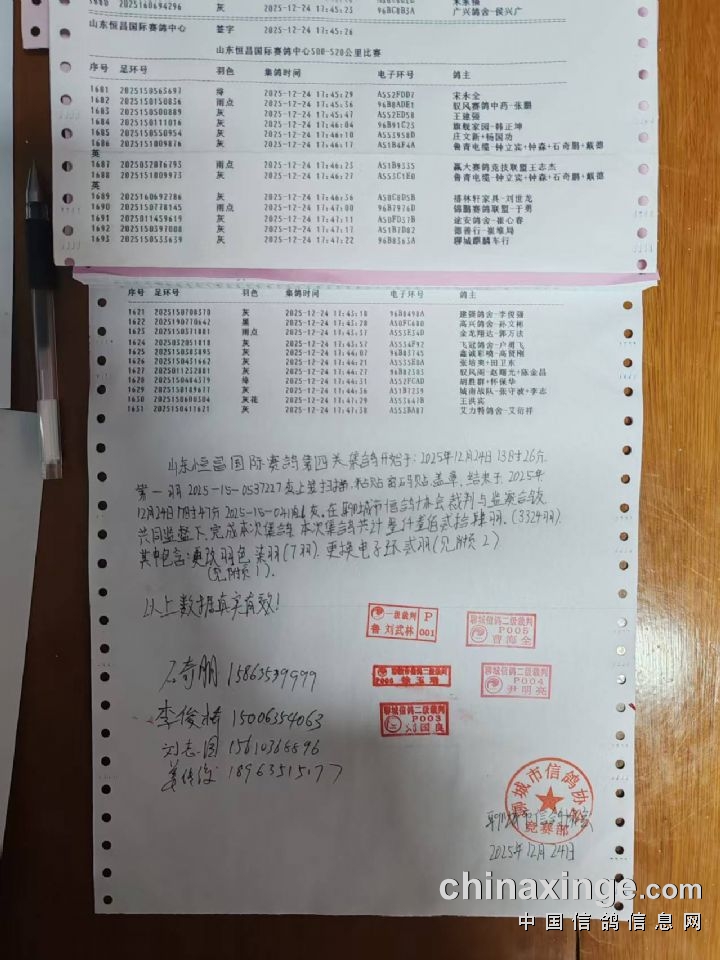 1680 2025160694296 灰 2025-12-24 17:45:23 96BC8B3A 广兴鸽舍-侯兴广
山东恒昌国际赛鸽中心 签字 2025-12-24 17:45:26
山东恒昌国际赛鸽中心500-520公里比赛
序号 足环号 羽色 集鸽时间 电子环号 鸽主
1681 2025150563697 绛 2025-12-24 17:45:29 宋永全
1682 2025150150836 雨点 2025-12-24 17:45:36 96B8ADE1 驭风赛鸽中药-张鹏
1683 2025150500889 灰 2025-12-24 17:45:47 A5S2ED58 王建强
1684 2025150111016 灰 2025-12-24 17:46:04 96B91C23 旗舰家园-韩正坤
1685 2025150550954 灰 2025-12-24 17:46:10 庄文新+杨国功
1686 2025151009876 灰 2025-12-24 17:46:17 A51B4F4A 鲁青电缆-钟立宾+钟森+石奇鹏+戴德
英
1687 2025032076793 雨点 2025-12-24 17:46:23 A51B9335 赢大赛鸽竞技联盟王志杰
1688 2025151009973 灰 2025-12-24 17:46:27 鲁青电缆-钟立宾+钟森+石奇鹏+戴德
英
1689 2025160692786 灰 2025-12-24 17:46:36 禧林轩家具-刘世龙
1690 2025150778145 雨点 2025-12-24 17:47:00 96B7976D 锦鹏赛鸽联盟-于勇
1691 2025011459619 灰 2025-12-24 17:47:11 A50FD37B 途安鸽舍-崔心春
1692 2025150397008 灰 2025-12-24 17:47:17 A51B7D02 德善行-崔堆局
1693 2025150533639 灰 2025-12-24 17:47:22 96B8363A 聊城麒麟车行
序号 足环号 羽色 集鸽时间 电子环号 鸽主
1621 2025150708370 灰 2025-12-24 17:43:10 96B8498A 建强鸽舍-李俊强
1622 2025190770642 黑 2025-12-24 17:43:28 A50FC680 高兴鸽舍-孙文彬
1623 2025150371881 雨点 2025-12-24 17:43:37 金龙翔达-郭万法
1624 2025032051018 灰 2025-12-24 17:43:54 飞冠鸽舍-户勇飞
1625 2025150303895 灰 2025-12-24 17:44:07 96B83745 鑫诚彩喷-高贤刚
1626 2025150431662 灰 2025-12-24 17:44:21 张培奥+田卫东
1627 2025011232881 灰 2025-12-24 17:44:27 96B82383 驭风阁-赵曙光+陈金昌
1628 2025150404379 绛 2025-12-24 17:44:31 A5S2FCAD 胡胜群+怀保华
1629 2025150149677 灰 2025-12-24 17:44:36 A51B7239 城南战队-张守波+李志
1630 2025150600304 灰花 2025-12-24 17:47:29 王洪宾
1631 2025150411621 灰 2025-12-24 17:47:38 艾力特鸽舍-艾衍祥
山东恒昌国际赛鸽第四关集鸽开始于:2025年12月24日13时26分
第一羽 2025-15-0537227 结束于 2025年
共同监督下,完成本次集鸽 本次集鸽共计 (3324羽)
其中包含:更改羽色 柒羽(7羽),更换电子环贰羽(见附页2)
(见附页1)
以上数据真实有效!
一级裁判 P
鲁 刘武林 001
聊城信鸽二级裁判
P005
曹海全
石奇朋 15863539999
聊城信鸽二级裁判
P004
尹明亮
李俊梅 15006354063
聊城信鸽二级裁判
P003
刘国良
刘志国 15610368896
18963515177
聊城市信鸽协会
竞赛部
2025年12月24日
chinaxinge.com
中国信鸽信息网